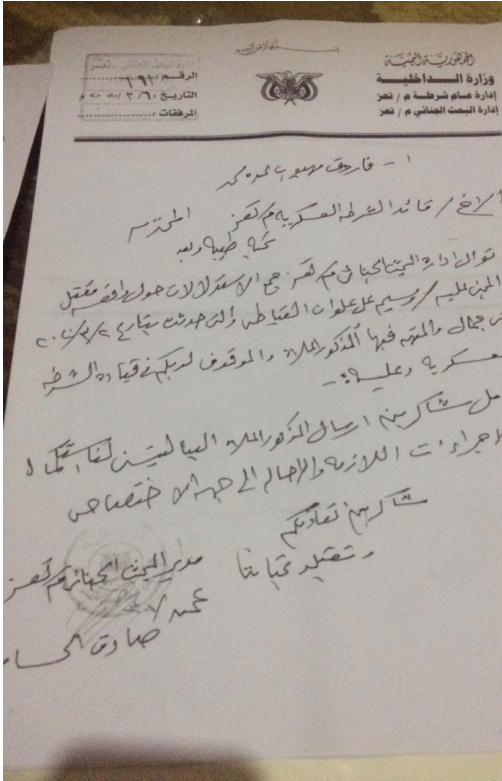 بسم الله الرحمن الرحيم
الجمهورية اليمنية
وزارة الداخلية
إدارة عام شرطة م / تعز
إدارة البحث الجنائي م / تعز
إدارة البحث الجنائي - تعز
الرقم:
التاريخ:
المرفقات:
١- فاروق مهيوب عبده محمد
الأخ / قائد الشرطة العسكرية م تعز المحترم
تحية طيبة وبعد
توال ادارة البحث الجنائي م تعز جمع الاستدلالات حول واقعة مقتل
المجني عليه / وسيم علي علوان القباطي والتي حدثت بتاريخ
جمال والمتهم فيها المذكور اعلاه والموقوف لديكم في قيادة الشرطة
العسكرية وعليه :-
شاكرين ارسال المذكور اعلاه الينا ليتسنى لنا استكمال
الاجراءات اللازمة والاحالة الى جهة الاختصاص
شاكرين تعاونكم
وتقبلوا تحياتنا
مدير البحث الجنائي م تعز
صادق